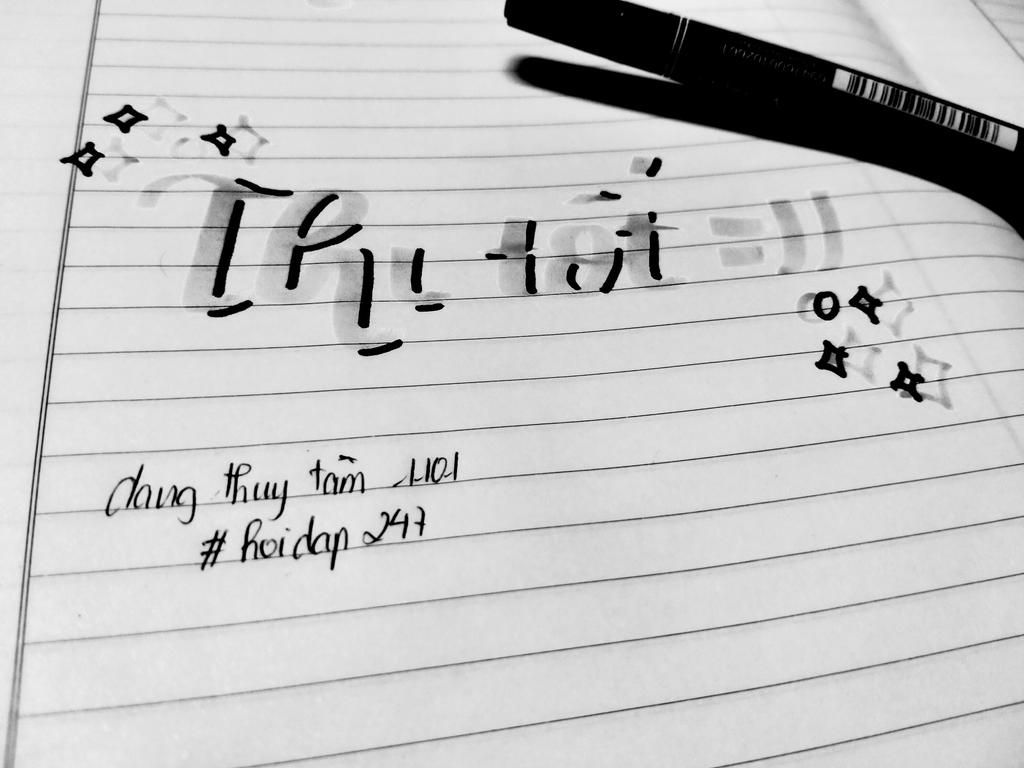 Thy tồi =))
dang thuy tâm 1101
# hoidap 247